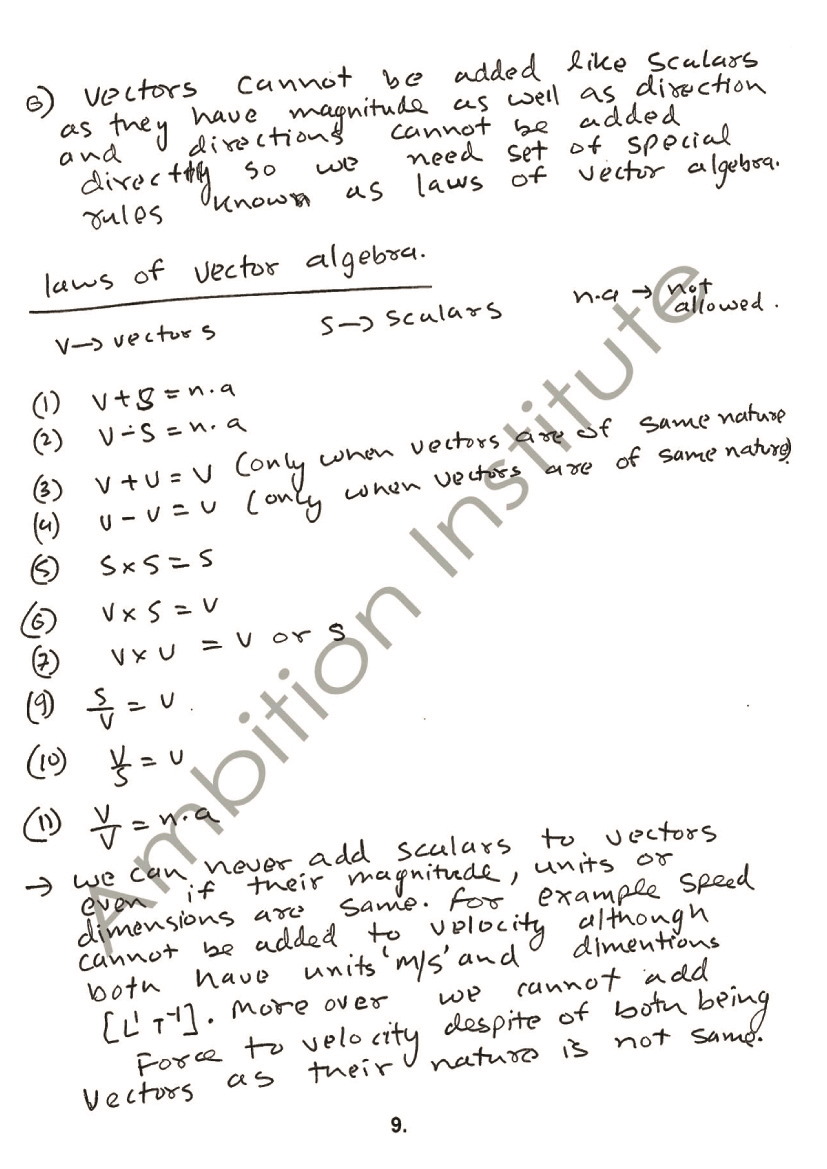 6) Vectors cannot be added like scalars
as they have magnitude as well as direction
and directions cannot be added
directly so we need set of special
rules known as laws of vector algebra.
laws of vector algebra.
V→ vectors S→ scalars n.a → not allowed.
(1) V+S = n.a
(2) V-S = n.a
(3) V+V = V (only when vectors are of same nature
(4) V-V = V (only when vectors are of same nature)
(5) S×S = S
(6) V×S = V
(7) V×V = V or S
(9) S/V = V.
(10) V/S = V
(11) V/V = n.a
→ we can never add scalars to vectors
even if their magnitude, units or
dimensions are same. For example speed
cannot be added to velocity although
both have units 'm/s' and dimentions
[L¹ T⁻¹]. More over we cannot add
Force to velocity despite of both being
Vectors as their nature is not same.
Ambition Institute
9.